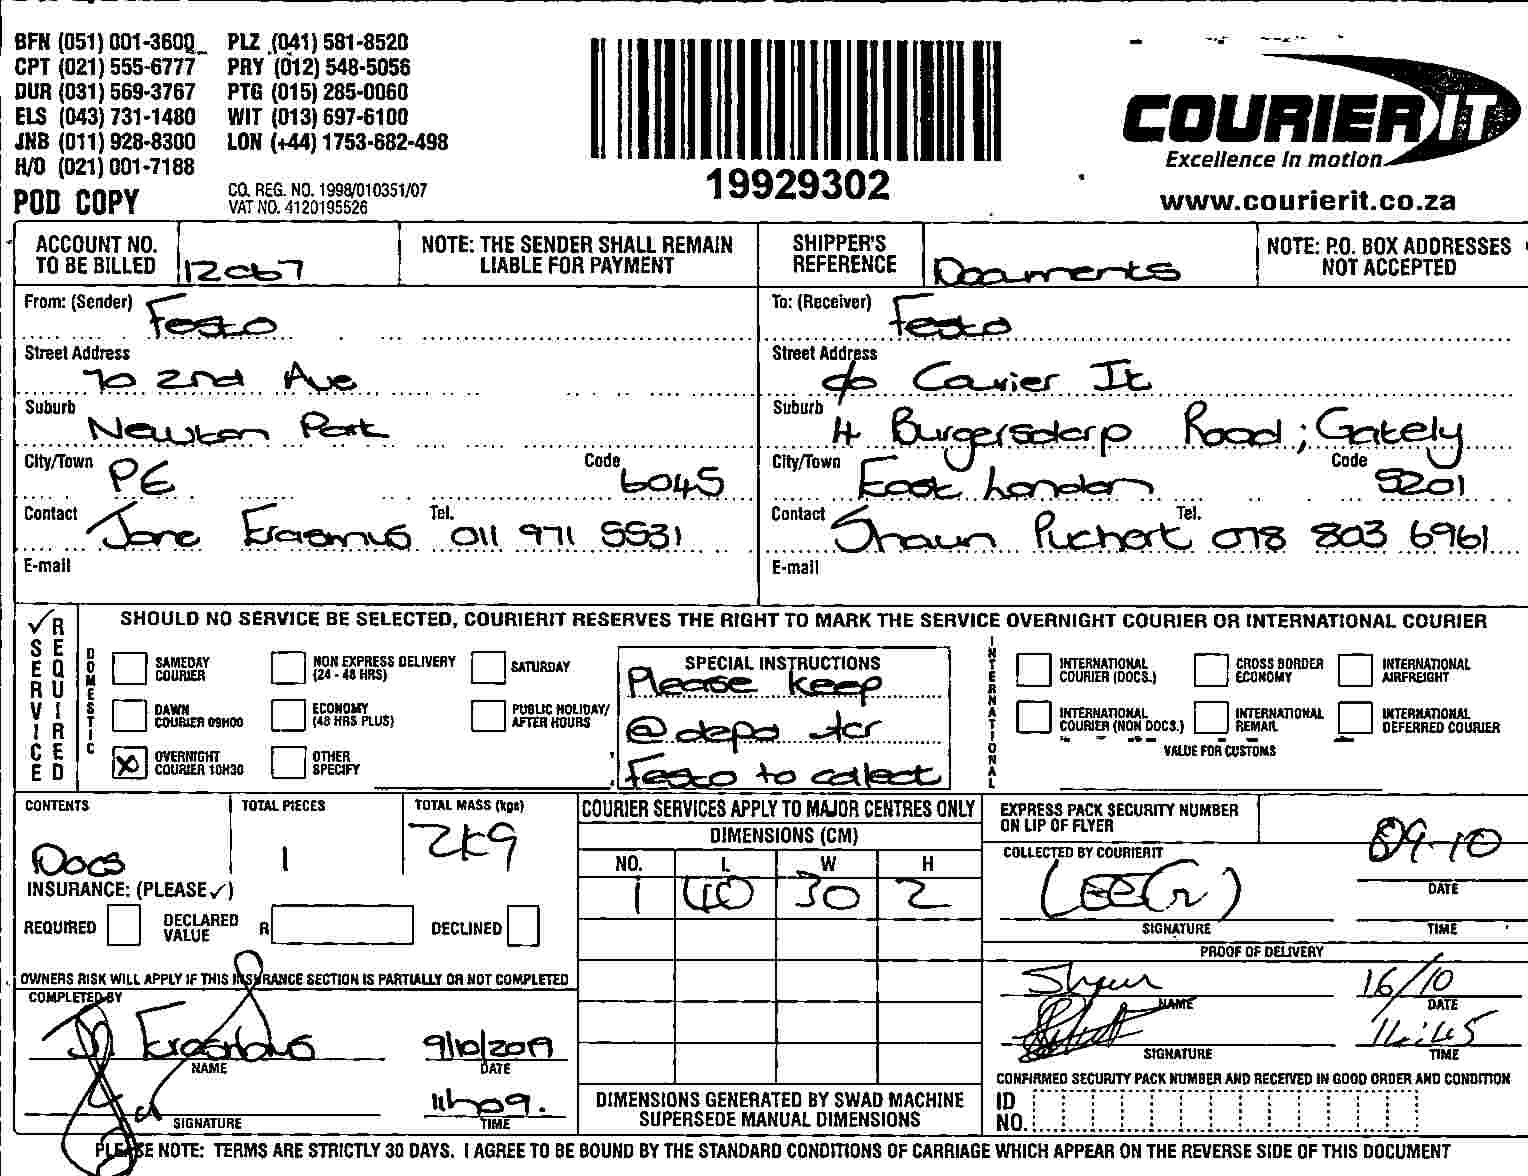 BFN (051) 001-3600 PLZ (041) 581-8520
CPT (021) 555-6777 PRY (012) 548-5056
DUR (031) 569-3767 PTG (015) 285-0060
ELS (043) 731-1480 WIT (013) 697-6100
JNB (011) 928-8300 LON (+44) 1753-682-498
H/O (021) 001-7188
POD COPY
CO. REG. NO. 1998/010351/07
VAT NO. 4120195526
19929302
COURIER IT
Excellence in motion
www.courierit.co.za
ACCOUNT NO. TO BE BILLED 12cb7
NOTE: THE SENDER SHALL REMAIN LIABLE FOR PAYMENT
SHIPPER'S REFERENCE Documents
NOTE: P.O. BOX ADDRESSES NOT ACCEPTED
From: (Sender) Fesco
Street Address 70 2nd Ave
Suburb Newton Park
City/Town PE Code 6045
Contact Jane Erasmus Tel. 011 971 5531
E-mail
To: (Receiver) Fesco
Street Address c/o Courier It
Suburb 4 Burgersdorp Road; Gately
City/Town East London Code 5201
Contact Shaun Puchert Tel. 078 803 6961
E-mail
✓ SERVICE REQUIRED
SHOULD NO SERVICE BE SELECTED, COURIERIT RESERVES THE RIGHT TO MARK THE SERVICE OVERNIGHT COURIER OR INTERNATIONAL COURIER
DOMESTIC
SAMEDAY COURIER
NON EXPRESS DELIVERY (24 - 48 HRS)
SATURDAY
DAWN COURIER 09H00
ECONOMY (48 HRS PLUS)
PUBLIC HOLIDAY/ AFTER HOURS
X OVERNIGHT COURIER 10H30
OTHER SPECIFY
SPECIAL INSTRUCTIONS
Please keep
@ depot for
Fesco to collect
INTERNATIONAL
INTERNATIONAL COURIER (DOCS.)
CROSS BORDER ECONOMY
INTERNATIONAL AIRFREIGHT
INTERNATIONAL COURIER (NON DOCS.)
INTERNATIONAL REMAIL
INTERNATIONAL DEFERRED COURIER
VALUE FOR CUSTOMS
CONTENTS Docs
TOTAL PIECES 1
TOTAL MASS (kgs) 2kg
INSURANCE: (PLEASE ✓)
REQUIRED DECLARED VALUE R DECLINED
OWNERS RISK WILL APPLY IF THIS INSURANCE SECTION IS PARTIALLY OR NOT COMPLETED
COMPLETED BY
J Erasmus 9/10/2019
NAME DATE
11h09.
SIGNATURE TIME
COURIER SERVICES APPLY TO MAJOR CENTRES ONLY
DIMENSIONS (CM)
NO. L W H
1 40 30 2
DIMENSIONS GENERATED BY SWAD MACHINE SUPERSEDE MANUAL DIMENSIONS
EXPRESS PACK SECURITY NUMBER ON LIP OF FLYER
COLLECTED BY COURIERIT
09-10
DATE
SIGNATURE TIME
PROOF OF DELIVERY
Shaun 16/10
NAME DATE
11:45
SIGNATURE TIME
CONFIRMED SECURITY PACK NUMBER AND RECEIVED IN GOOD ORDER AND CONDITION
ID NO.
PLEASE NOTE: TERMS ARE STRICTLY 30 DAYS. I AGREE TO BE BOUND BY THE STANDARD CONDITIONS OF CARRIAGE WHICH APPEAR ON THE REVERSE SIDE OF THIS DOCUMENT